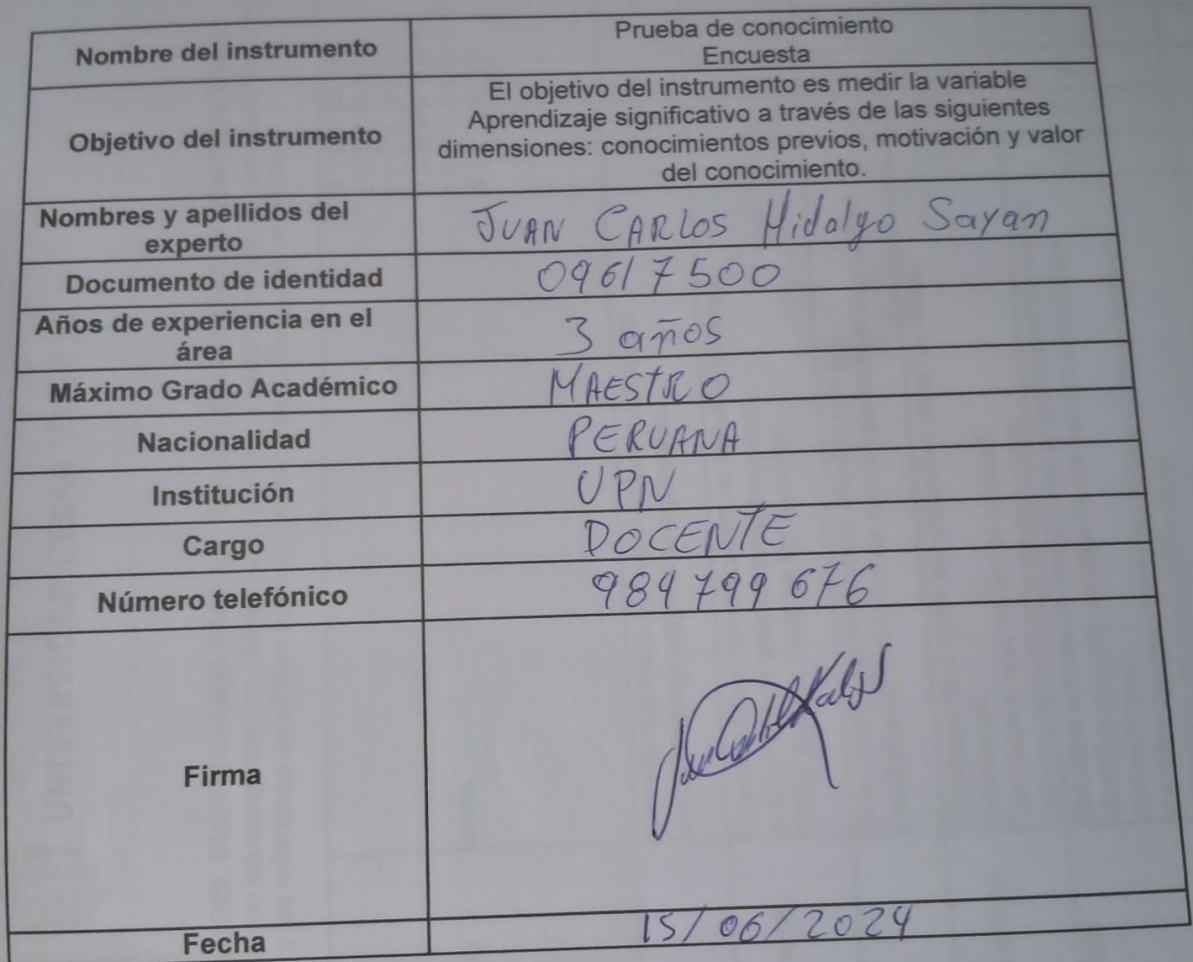 Nombre del instrumento
Prueba de conocimiento
Encuesta
Objetivo del instrumento
El objetivo del instrumento es medir la variable
Aprendizaje significativo a través de las siguientes
dimensiones: conocimientos previos, motivación y valor
del conocimiento.
Nombres y apellidos del
experto
JUAN CARLOS Hidalgo Sayan
Documento de identidad
09617500
Años de experiencia en el
área
3 años
Máximo Grado Académico
MAESTRO
Nacionalidad
PERUANA
Institución
UPN
Cargo
DOCENTE
Número telefónico
984 799 676
Firma
Fecha
15/06/2024